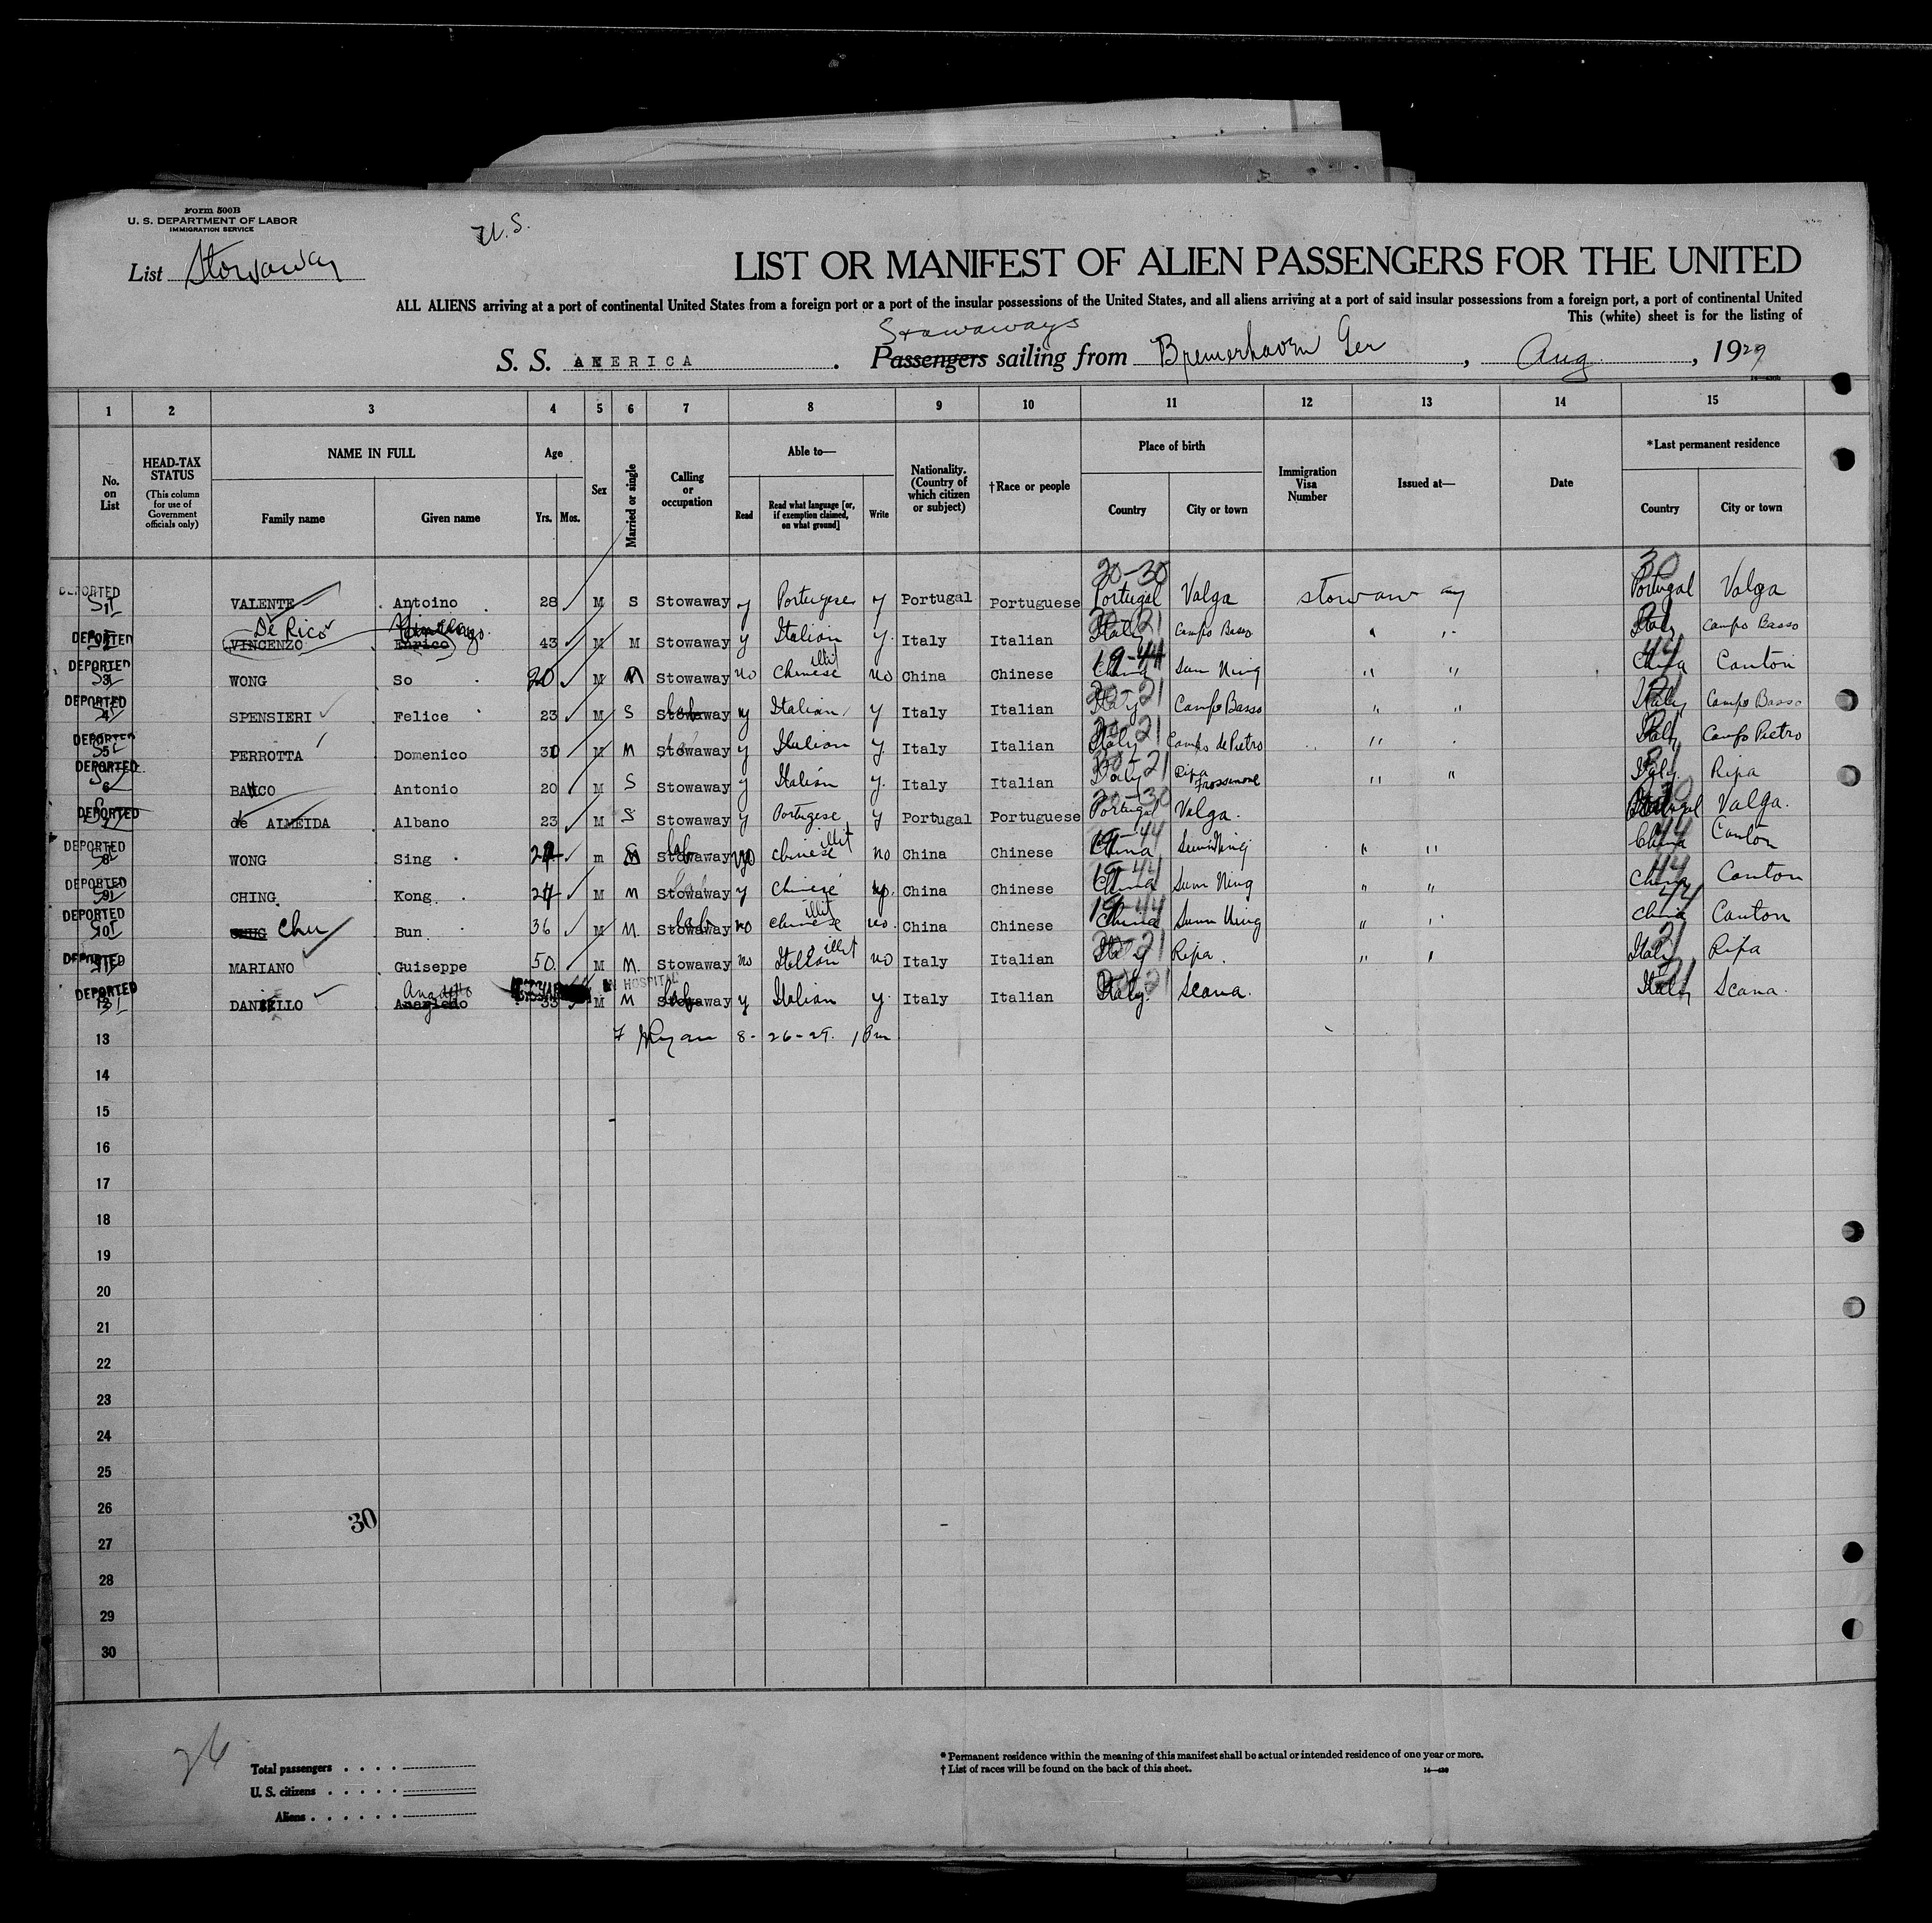 Form 500B
U. S. DEPARTMENT OF LABOR
IMMIGRATION SERVICE
U. S.
List Stowaway
LIST OR MANIFEST OF ALIEN PASSENGERS FOR THE UNITED
ALL ALIENS arriving at a port of continental United States from a foreign port or a port of the insular possessions of the United States, and all aliens arriving at a port of said insular possessions from a foreign port, a port of continental United
This (white) sheet is for the listing of
Stowaways
S. S. AMERICA. Passengers sailing from Bremerhaven Ger, Aug, 1929
1 2 3 4 5 6 7 8 9 10 11 12 13 14 15
No. on List
HEAD-TAX STATUS (This column for use of Government officials only)
NAME IN FULL
Family name Given name
Age
Yrs. Mos.
Sex
Married or single
Calling or occupation
Able to—
Read Read what language [or, if exemption claimed, on what ground] Write
Nationality. (Country of which citizen or subject)
†Race or people
Place of birth
Country City or town
Immigration Visa Number
Issued at—
Date
*Last permanent residence
Country City or town
20-30 30
DEPORTED 1 VALENTE Antoino 28 M S Stowaway y Portugese y Portugal Portuguese Portugal Valga stowaway Portugal Valga
De Rico
DEPORTED VINCENZO Enrico 43 M M Stowaway y Italian y. Italy Italian Italy 21 Campo Basso " " Italy Campo Basso
DEPORTED 3 WONG So 20 M M Stowaway no Chinese illit no China Chinese 19-44 China Sun Ning " " 44 China Canton
DEPORTED 4 SPENSIERI Felice 23 M S Stowaway y Italian y Italy Italian 20-21 Italy Campo Basso " " Italy Campo Basso
DEPORTED 5 PERROTTA Domenico 30 M M Stowaway y Italian y. Italy Italian 21 Italy Campo de Pietro " Italy Campo Pietro
DEPORTED 6 BANCO Antonio 20 M S Stowaway y Italian y. Italy Italian 21 Italy Ripa " " Italy Ripa
DEPORTED de ALMEIDA Albano 23 M S Stowaway y Portugese y Portugal Portuguese 20-30 Portugal Valga. Portugal Valga.
DEPORTED 8 WONG Sing 24 m S Stowaway no Chinese illit no China Chinese 19-44 China Sunn Ning " " 44 China Canton
DEPORTED 9 CHING Kong 24 M M Stowaway y Chinese China Chinese 19-44 China Sunn Ning " " 44 China Canton
DEPORTED 10 Chu Bun 36 M M. Stowaway no Chinese illit no. China Chinese 19-44 China Sunn Ning " " 44 China Canton
DEPORTED MARIANO Guiseppe 50 M M. Stowaway no Italian illit no Italy Italian 21 Italy Ripa. " " 21 Italy Ripa
IN HOSPITAL
DEPORTED DANIELLO Angelo 33 M M Stowaway y Italian y. Italy Italian 21 Italy. Scana. 21 Italy Scana.
13 Ryan 8-26-29. 1 Pm
14
15
16
17
18
19
20
21
22
23
24
25
26
30
27
28
29
30
Total passengers
U. S. citizens
Aliens
* Permanent residence within the meaning of this manifest shall be actual or intended residence of one year or more.
† List of races will be found on the back of this sheet.